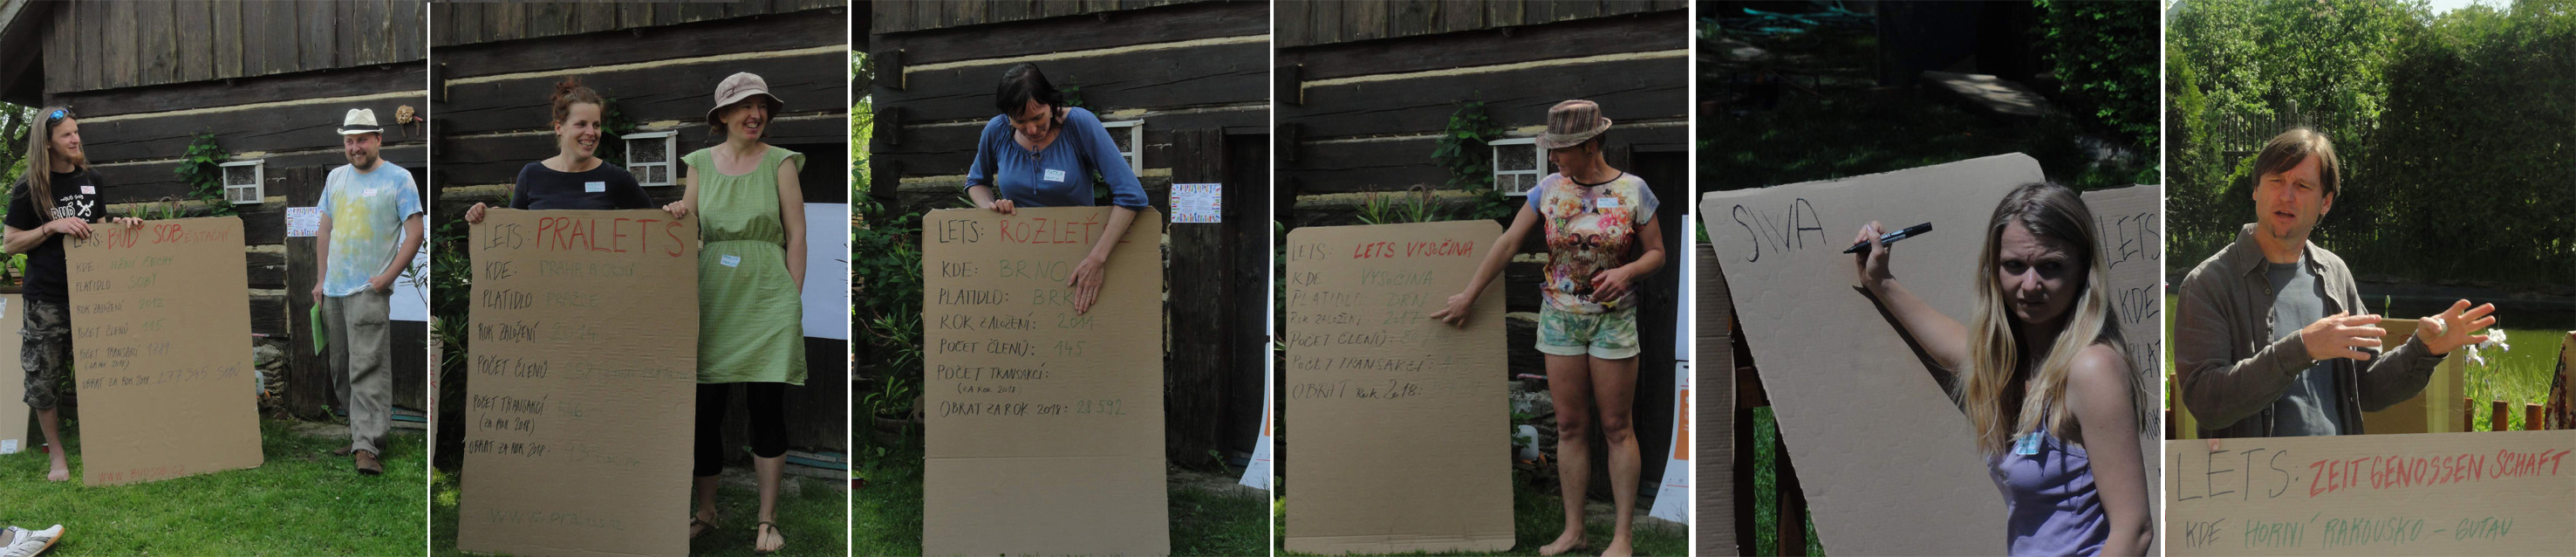 LETS: BUĎ SOBĚSTAČNÝ
KDE:
PLATIDLO SOBÍ
ROK ZALOŽENÍ 2012
POČET ČLENŮ 115
POČET TRANSAKCÍ 1721
(ZA ROK 2018)
OBRAT ZA ROK 2018
WWW.BUDSOB.CZ
LETS: PRALETS
KDE: PRAHA
PLATIDLO PRAŽCE
ROK ZALOŽENÍ 2014
POČET ČLENŮ
POČET TRANSAKCÍ 516
(ZA ROK 2018)
OBRAT ZA ROK 2018:
www.pralets.cz
LETS: ROZLEŤ
KDE: BRNO
PLATIDLO: BRK
ROK ZALOŽENÍ: 2011
POČET ČLENŮ: 145
POČET TRANSAKCÍ:
(ZA ROK 2018)
OBRAT ZA ROK 2018: 28 592
LETS: LETS VYSOČINA
KDE VYSOČINA
PLATIDLO DRN
ROK ZALOŽENÍ 2017
POČET ČLENŮ: 80
POČET TRANSAKCÍ:
OBRAT Rok 2018:
SWA
LETS
KDE
PLAT
ROK
LETS: ZEITGENOSSENSCHAFT
KDE HORNÍ RAKOUSKO – GUTAU